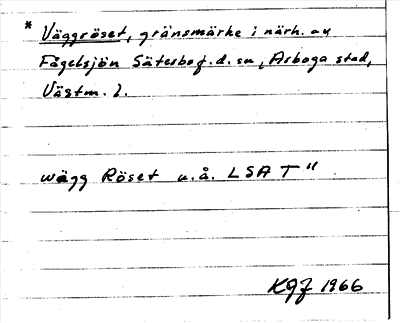 * Väggröset, gränsmärke i närh. av
Fågelsjön Sätesbof. d. sn, (Arboga stad,
Västm. l.
wägg Röset u.å. LSA T"
KGJ 1966